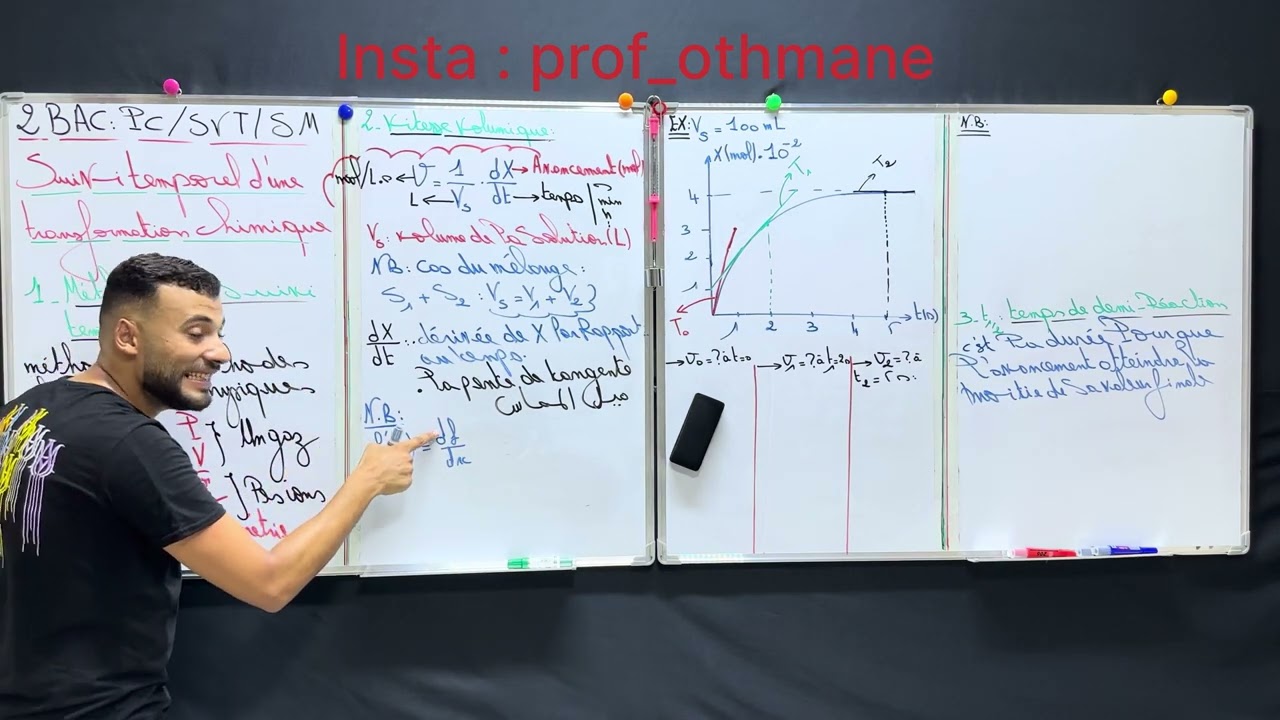 Insta : prof_othmane
2 BAC: PC/SVT/SM
Suivi temporel d'une
transformation chimique
1_
tem
métho
P
V } Un gaz
} Les ions
2_Vitesse Volumique:
mol/L.s ← V = 1/Vs . dX/dt → Avancement(mol)
L ← Vs dt → temps | s min h
Vs: volume de la solution (L)
NB: cas du mélange:
S1 + S2 : Vs = V1 + V2 }
dX/dt : . dérivée de X Par Rapport
au temps.
. la pente de tangente
ميل المماس
N.B:
= df/dx
EX: Vs = 100 mL
X(mol).10⁻²
T1
T2
4
3
2
1
T0
1 2 3 4 5 t(s)
→ V0 = ? à t=0
→ V1 = ? à t1 = 2s
→ V2 = ? à
t2 = 5s.
N.B:
3_t1/2: temps de demi-Réaction
c'est la durée Pour que
l'avancement atteindre la
moitie de sa valeur finale